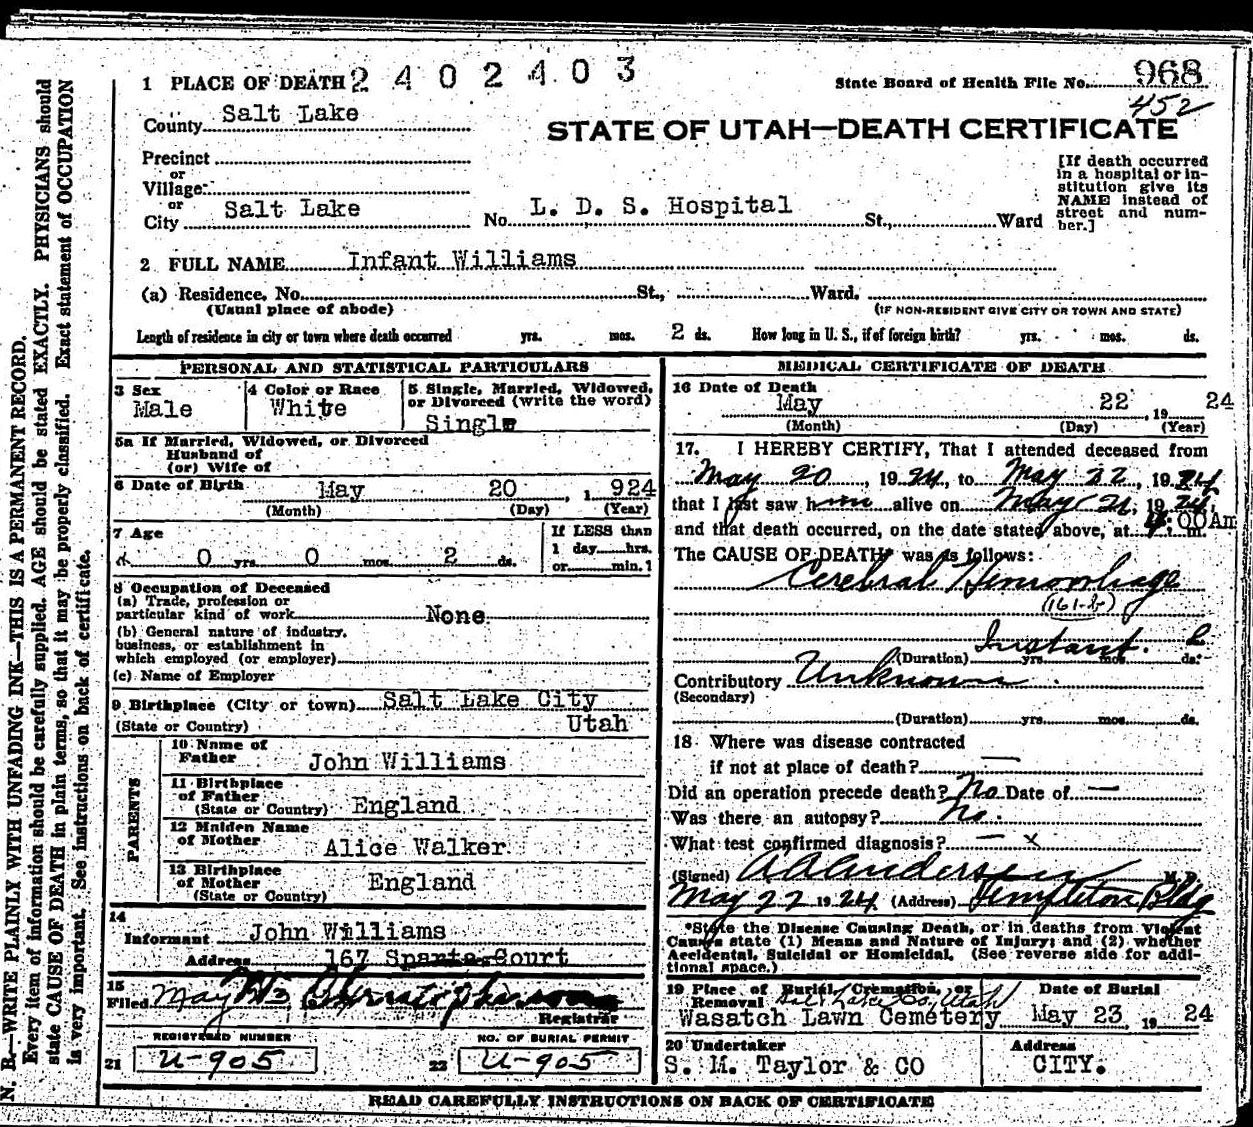 1 PLACE OF DEATH 2 4 0 2 4 0 3
State Board of Health File No. 968
452
County Salt Lake
STATE OF UTAH—DEATH CERTIFICATE
Precinct
or
Village
or
City Salt Lake
No. L. D. S. Hospital St., Ward
[If death occurred
in a hospital or in-
stitution give its
NAME instead of
street and num-
ber.]
2 FULL NAME Infant Williams
(a) Residence, No. St., Ward.
(Usual place of abode)
(IF NON-RESIDENT GIVE CITY OR TOWN AND STATE)
Length of residence in city or town where death occurred yrs. mos. 2 ds. How long in U. S., if of foreign birth? yrs. mos. ds.
PERSONAL AND STATISTICAL PARTICULARS
3 Sex
Male
4 Color or Race
White
5 Single, Married, Widowed,
or Divorced (write the word)
Single
5a If Married, Widowed, or Divorced
Husband of
(or) Wife of
6 Date of Birth May 20, 1924
(Month) (Day) (Year)
7 Age
0 yrs. 0 mos. 2 ds.
If LESS than
1 day hrs.
or min.?
8 Occupation of Deceased
(a) Trade, profession or
particular kind of work None
(b) General nature of industry,
business, or establishment in
which employed (or employer)
(c) Name of Employer
9 Birthplace (City or town) Salt Lake City
(State or Country) Utah
PARENTS
10 Name of
Father John Williams
11 Birthplace
of Father
(State or Country) England
12 Maiden Name
of Mother Alice Walker
13 Birthplace
of Mother
(State or Country) England
14
Informant John Williams
Address 167 Sparta Court
15
Filed May
Registrar
REGISTERED NUMBER
21 U-905
NO. OF BURIAL PERMIT
22 U-905
MEDICAL CERTIFICATE OF DEATH
16 Date of Death
May 22, 19 24
(Month) (Day) (Year)
17. I HEREBY CERTIFY, That I attended deceased from
May 20, 1924, to May 22, 1924
that I last saw him alive on May 21, 1924,
and that death occurred, on the date stated above, at 4:00Am m.
The CAUSE OF DEATH* was as follows:
Cerebral Hemorrhage
(161-b)
Instant.
(Duration) yrs. mos. ds.
Contributory Unknown
(Secondary)
(Duration) yrs. mos. ds.
18 Where was disease contracted
if not at place of death? —
Did an operation precede death? No Date of —
Was there an autopsy? No.
What test confirmed diagnosis? — x
(Signed) A A Anderson M. D.
May 22 1924 (Address) Templeton Bldg
*State the Disease Causing Death, or in deaths from Violent
Causes state (1) Means and Nature of Injury; and (2) whether
Accidental, Suicidal or Homicidal. (See reverse side for addi-
tional space.)
19 Place of Burial, Cremation, or
Removal Salt Lake Co, Utah
Wasatch Lawn Cemetery
Date of Burial
May 23, 19 24
20 Undertaker
S. M. Taylor & CO
Address
CITY.
READ CAREFULLY INSTRUCTIONS ON BACK OF CERTIFICATE
N. B.—WRITE PLAINLY WITH UNFADING INK—THIS IS A PERMANENT RECORD.
Every item of information should be carefully supplied. AGE should be stated EXACTLY. PHYSICIANS should
state CAUSE OF DEATH in plain terms, so that it may be properly classified. Exact statement of OCCUPATION
is very important. See instructions on back of certificate.